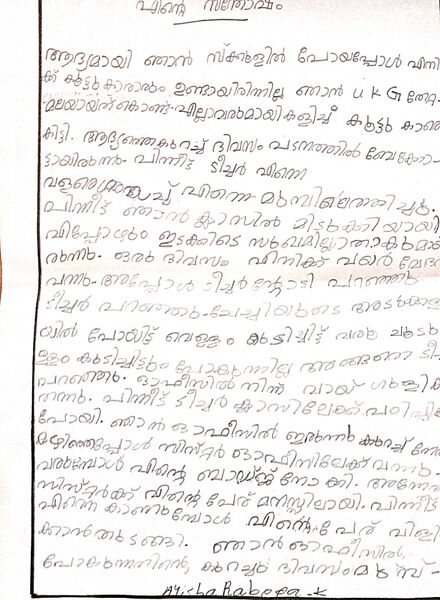 എന്റെ സന്തോഷം
ആദ്യമായി ഞാൻ സ്ക്കൂളിൽ പോയപ്പോൾ എനി
ക്ക് കൂട്ടുകാരാരും ഉണ്ടായിരിന്നില്ല ഞാൻ UKG
മലയായത്കൊണ്ട് എല്ലാവരുമായികളിച്ച് കൂട്ടുകാരെ
കിട്ടി. ആദ്യത്തെകുറച്ച് ദിവസം പടനത്തിൽ
പിന്നീട്ട് ടീച്ചർ എന്നെ
വളരെ എന്നെ
പിന്നീട്ട് ഞാൻ ക്ലാസിൽ മിടുക്കിയായി
എപ്പോളും ഇടക്കിടെ സുഖമില്ലാതാകുമാ
രുന്നു. ഒരു ദിവസം എനിക്ക് വയർ വേദന
വന്നു. അപ്പോൾ ടീച്ചർനോടി പറഞ്ഞു.
ടീച്ചർ പറഞ്ഞു. ചേച്ചിയുടെ അടുക്കള
യിൽ പോയിട്ട് വെള്ളം കുടിച്ചിട്ട് വരൂ ചൂടുവെ
ള്ളം കുടിച്ചിട്ടും പോകുന്നില്ല അങ്ങനെ ടീച്ച
പറഞ്ഞു. ഓഫീസിൽ നിന്ന് വായ് ഗുളിക
തന്നു. പിന്നീട് ടീച്ചർ ക്ലാസിലേക്ക് പഠിപ്പിക്ക
പോയി. ഞാൻ ഓഫീസിൽ ഇരുന്നു കുറച്ച് നേര
കഴിഞ്ഞപ്പോൾ സിസ്റ്റർ ഓഫീസിലേക്ക് വന്നു.
വരുമ്പോൾ എന്റെ ബാഡ്ജ് നോക്കി. അന്നേരം
സിസ്റ്റർക്ക് എന്റെ പേര് മനസ്സിലായി. പിന്നീട്
എന്നെ കാണുമ്പോൾ എന്റെ പേര് വിളി
ക്കാൻതുടങ്ങി. ഞാൻഓഫീസിൽ
പോകുന്നതിന്റെ, കുറച്ചു ദിവസംമുമ്പ് -
Ayisha Rabeea -K